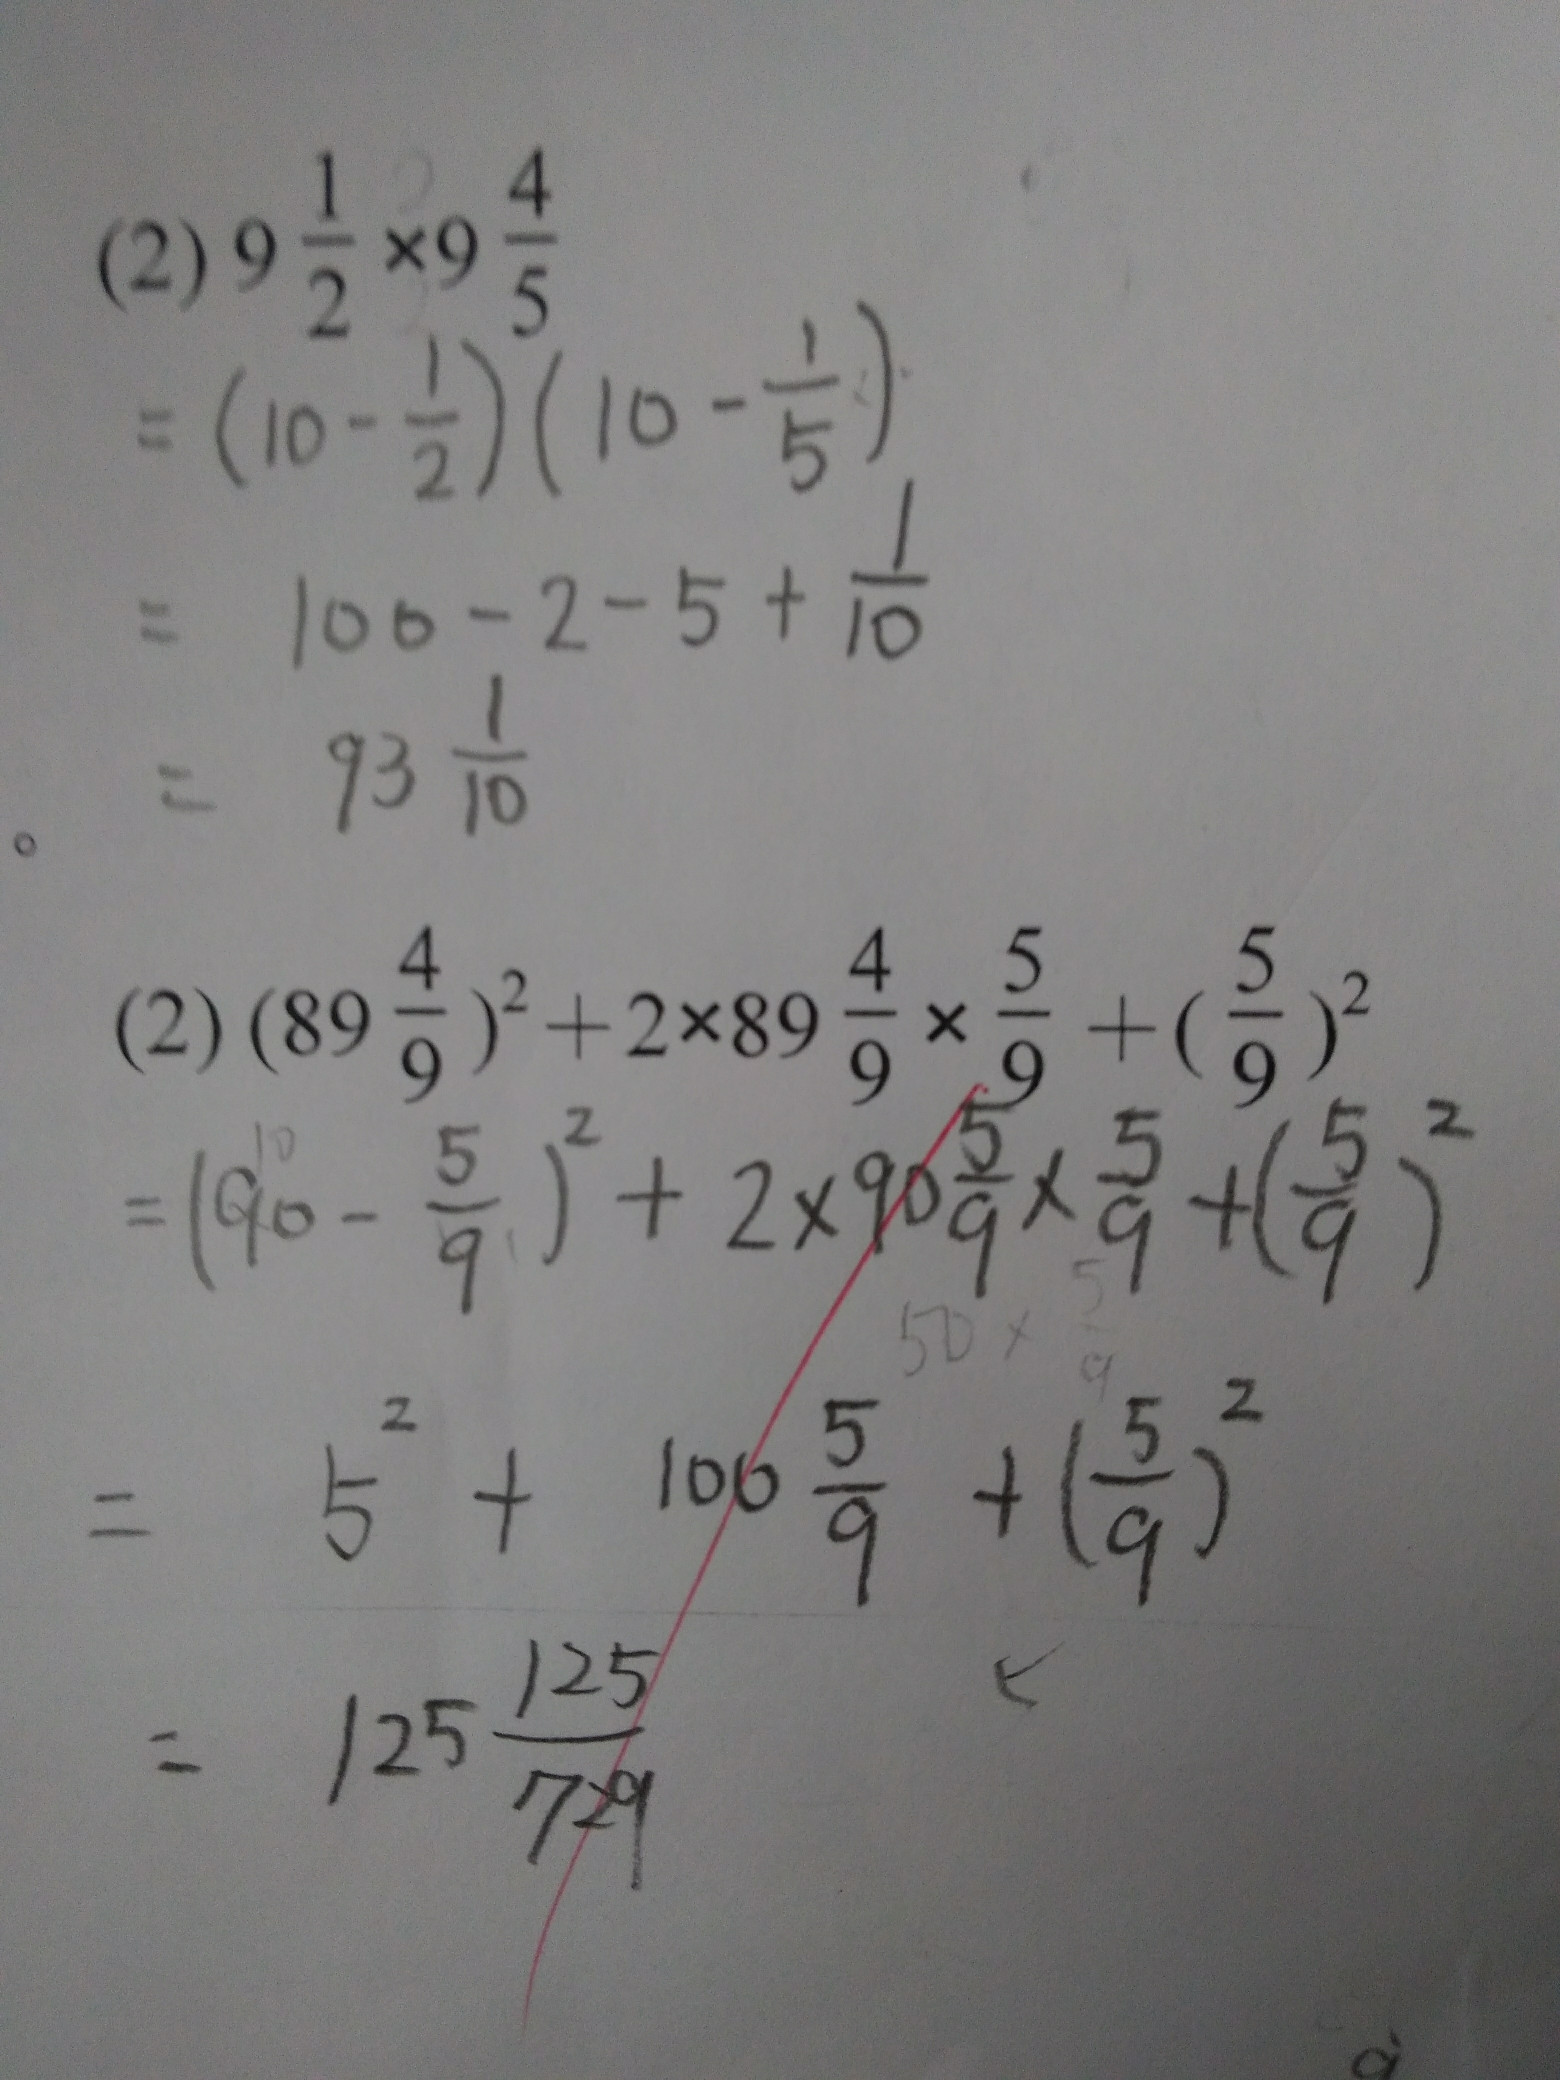 (2) 9 1/2 ×9 4/5
= (10 - 1/2)(10 - 1/5)
= 100 - 2 - 5 + 1/10
= 93 1/10
(2) (89 4/9)² + 2×89 4/9 × 5/9 + (5/9)²
= (90 - 5/9)² + 2 × 90 5/9 × 5/9 + (5/9)²
50 × 5/9
= 5² + 100 5/9 + (5/9)²
= 125 125/729